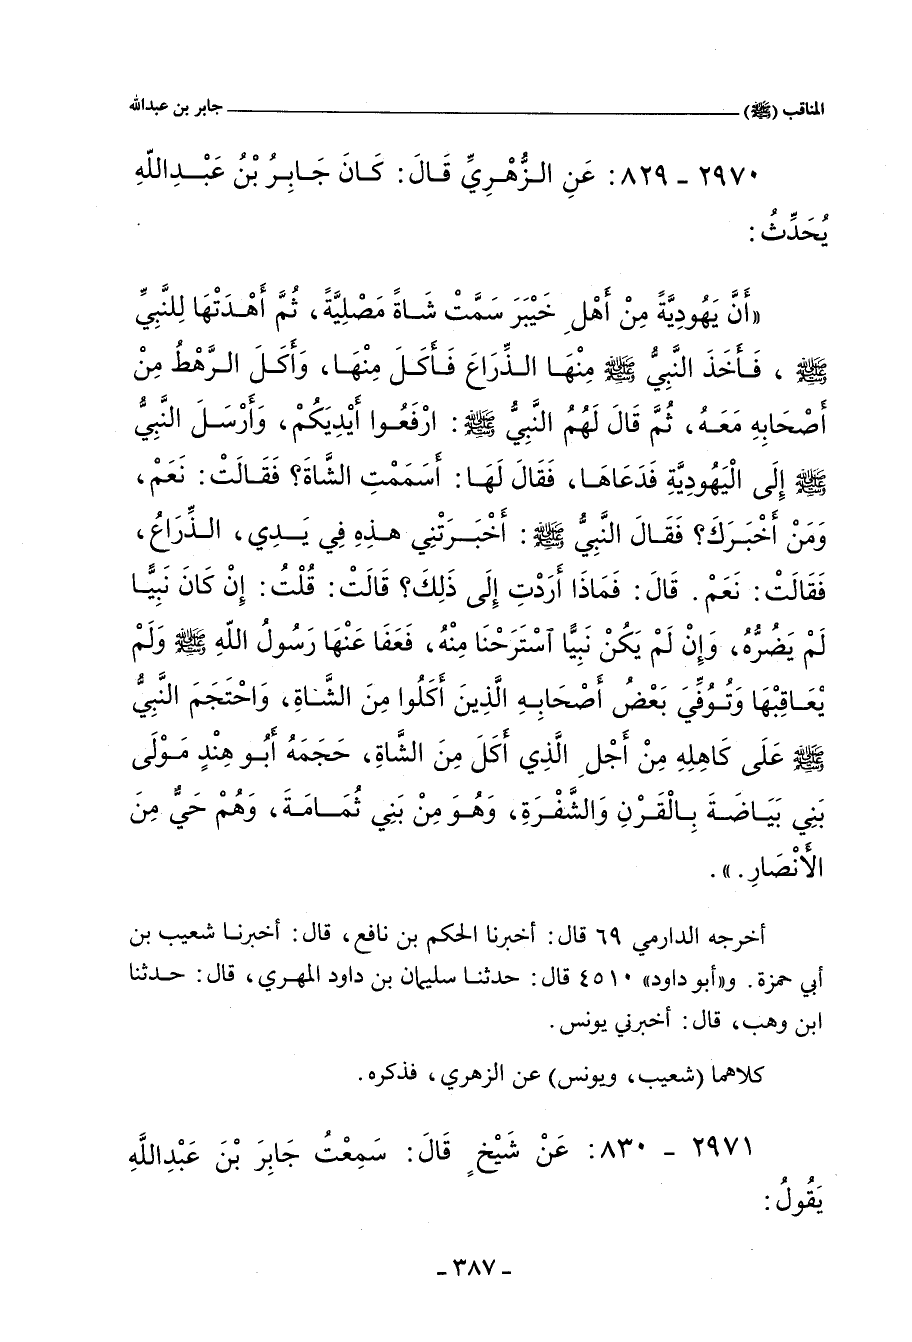 المناقب (ﷺ) ـــــــــــــــــــــــــــــــــــــــ جابر بن عبدالله
٢٩٧٠ ـ ٨٢٩: عَنِ الزُّهْرِيِّ قَالَ: كَانَ جَابِرُ بْنُ عَبْدِاللَّهِ
يُحَدِّثُ:
«أَنَّ يَهُودِيَّةً مِنْ أَهْلِ خَيْبَرَ سَمَّتْ شَاةً مَصْلِيَّةً، ثُمَّ أَهْدَتْهَا لِلنَّبِيِّ
ﷺ ، فَأَخَذَ النَّبِيُّ ﷺ مِنْهَا الذِّرَاعَ فَأَكَلَ مِنْهَا، وَأَكَلَ الرَّهْطُ مِنْ
أَصْحَابِهِ مَعَهُ، ثُمَّ قَالَ لَهُمُ النَّبِيُّ ﷺ: ارْفَعُوا أَيْدِيَكُمْ، وَأَرْسَلَ النَّبِيُّ
ﷺ إِلَى الْيَهُودِيَّةِ فَدَعَاهَا، فَقَالَ لَهَا: أَسَمَمْتِ الشَّاةَ؟ فَقَالَتْ: نَعَمْ،
وَمَنْ أَخْبَرَكَ؟ فَقَالَ النَّبِيُّ ﷺ: أَخْبَرَتْنِي هٰذِهِ فِي يَدِي، الذِّرَاعُ،
فَقَالَتْ: نَعَمْ. قَالَ: فَمَاذَا أَرَدْتِ إِلَى ذَلِكَ؟ قَالَتْ: قُلْتُ: إِنْ كَانَ نَبِيًّا
لَمْ يَضُرُّهُ، وَإِنْ لَمْ يَكُنْ نَبِيًّا ٱسْتَرَحْنَا مِنْهُ، فَعَفَا عَنْهَا رَسُولُ اللَّهِ ﷺ وَلَمْ
يُعَاقِبْهَا وَتُوُفِّيَ بَعْضُ أَصْحَابِهِ الَّذِينَ أَكَلُوا مِنَ الشَّاةِ، وَاحْتَجَمَ النَّبِيُّ
ﷺ عَلَى كَاهِلِهِ مِنْ أَجْلِ الَّذِي أَكَلَ مِنَ الشَّاةِ، حَجَمَهُ أَبُو هِنْدٍ مَوْلَى
بَنِي بَيَاضَةَ بِالْقَرْنِ وَالشَّفْرَةِ، وَهُوَ مِنْ بَنِي ثُمَامَةَ، وَهُمْ حَيٌّ مِنَ
الأَنْصَارِ.».
أخرجه الدارمي ٦٩ قال: أخبرنا الحكم بن نافع، قال: أخبرنا شعيب بن
أبي حمزة. و«أبو داود» ٤٥١٠ قال: حدثنا سليمان بن داود المهري، قال: حدثنا
ابن وهب، قال: أخبرني يونس.
كلاهما (شعيب، ويونس) عن الزهري، فذكره.
٢٩٧١ ـ ٨٣٠: عَنْ شَيْخٍ قَالَ: سَمِعْتُ جَابِرَ بْنَ عَبْدِاللَّهِ
يَقُولُ:
ـ ٣٨٧ ـ